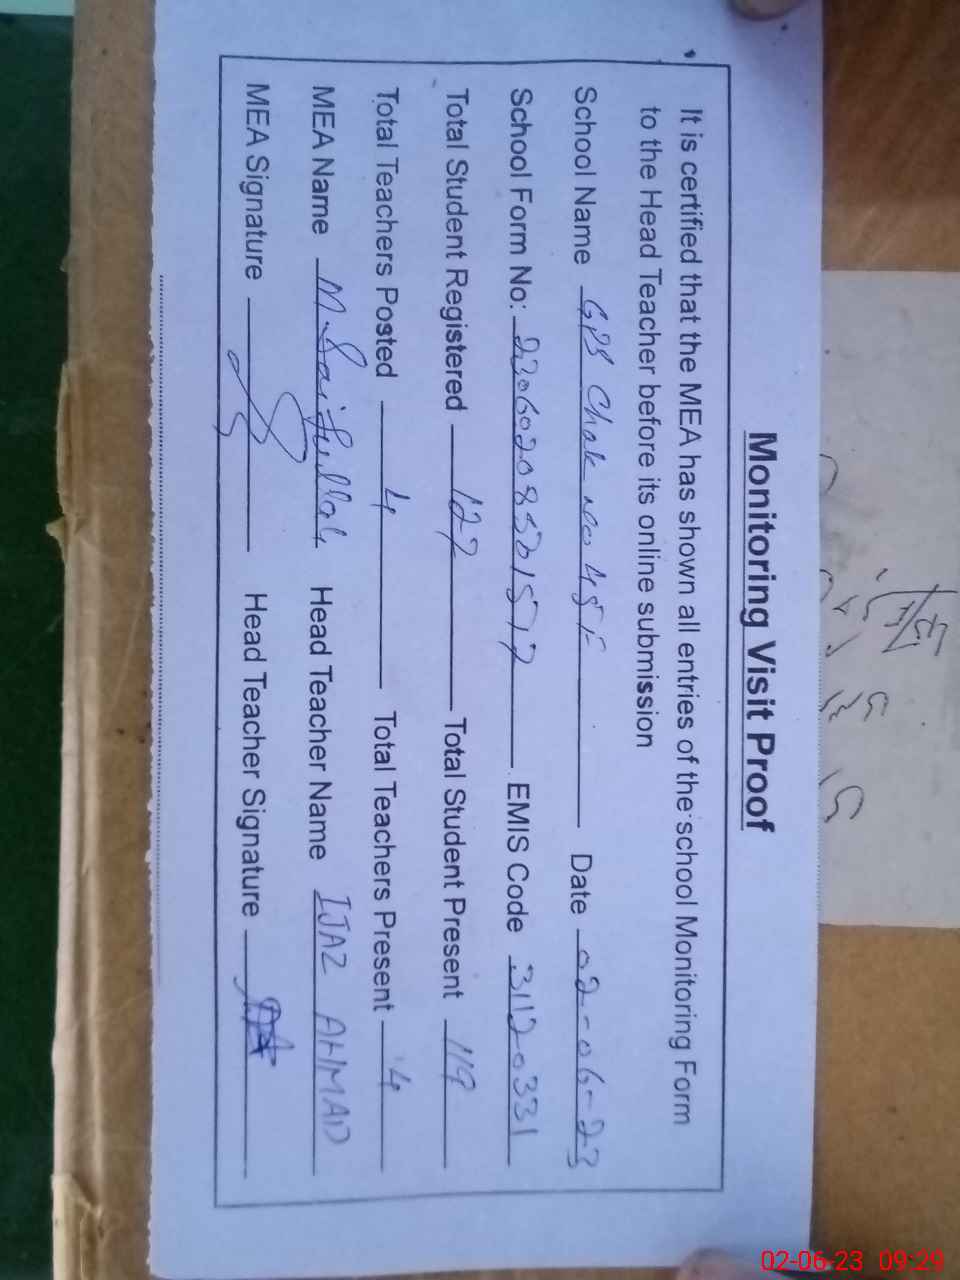 Monitoring Visit Proof
It is certified that the MEA has shown all entries of the school Monitoring Form
to the Head Teacher before its online submission
School Name GPS Chak No 48F Date 02-06-23
School Form No: EMIS Code 31120331
Total Student Registered 127 Total Student Present 119
Total Teachers Posted 4 Total Teachers Present 4
MEA Name M. Saifullah Head Teacher Name IJAZ AHMAD
MEA Signature Head Teacher Signature
02-06-23 09:29